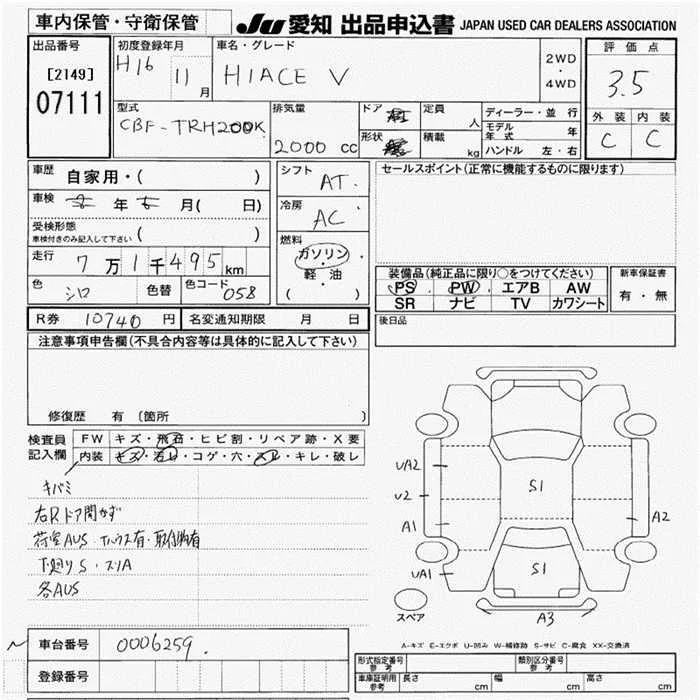 車内保管・守衛保管 JU 愛知 出品申込書 JAPAN USED CAR DEALERS ASSOCIATION
出品番号
[2149]
07111
初度登録年月
H16 11月
車名・グレード
HIACE V
2WD
・
4WD
評価点
3.5
外装 内装
C C
型式
CBF-TRH200K
排気量
2000 cc
ドア
形状
定員 人
積載 kg
ディーラー・並行
モデル年式 年
ハンドル 左・右
車歴 自家用・( )
車検 年 月( 日)
受検形態
車検付きのみ記入して下さい ( )
走行 7万1千495km
色 シロ 色替 色コード 058
シフト
AT
冷房
AC
燃料
ガソリン
・
軽・油
( )
セールスポイント(正常に機能するものに限ります)
装備品(純正品に限り○をつけてください)
PS PW エアB AW
SR ナビ TV カワシート
新車保証書
有・無
後日品
R券 10740 円 名変通知期限 月 日
注意事項申告欄(不具合内容等は具体的に記入して下さい)
修復歴 有 [箇所 ]
検査員
記入欄
FW キズ・飛石・ヒビ割・リペア跡・X要
内装 キズ・汚れ・コゲ・穴・スレ・キレ・破レ
キバミ
右Rドア開かず
荷室AUS・ハウス有・取付物有
下廻りS・スリA
各AUS
UA2
U2
A1
UA1
S1
S1
A2
A3
スペア
A-キズ E-エクボ U-凹み W-補修跡 S-サビ C-腐食 XX-交換済
車台番号 0006259
登録番号
型式指定番号 参考
類別区分番号 参考
車庫証明用 参考 長さ cm 幅 cm 高さ cm